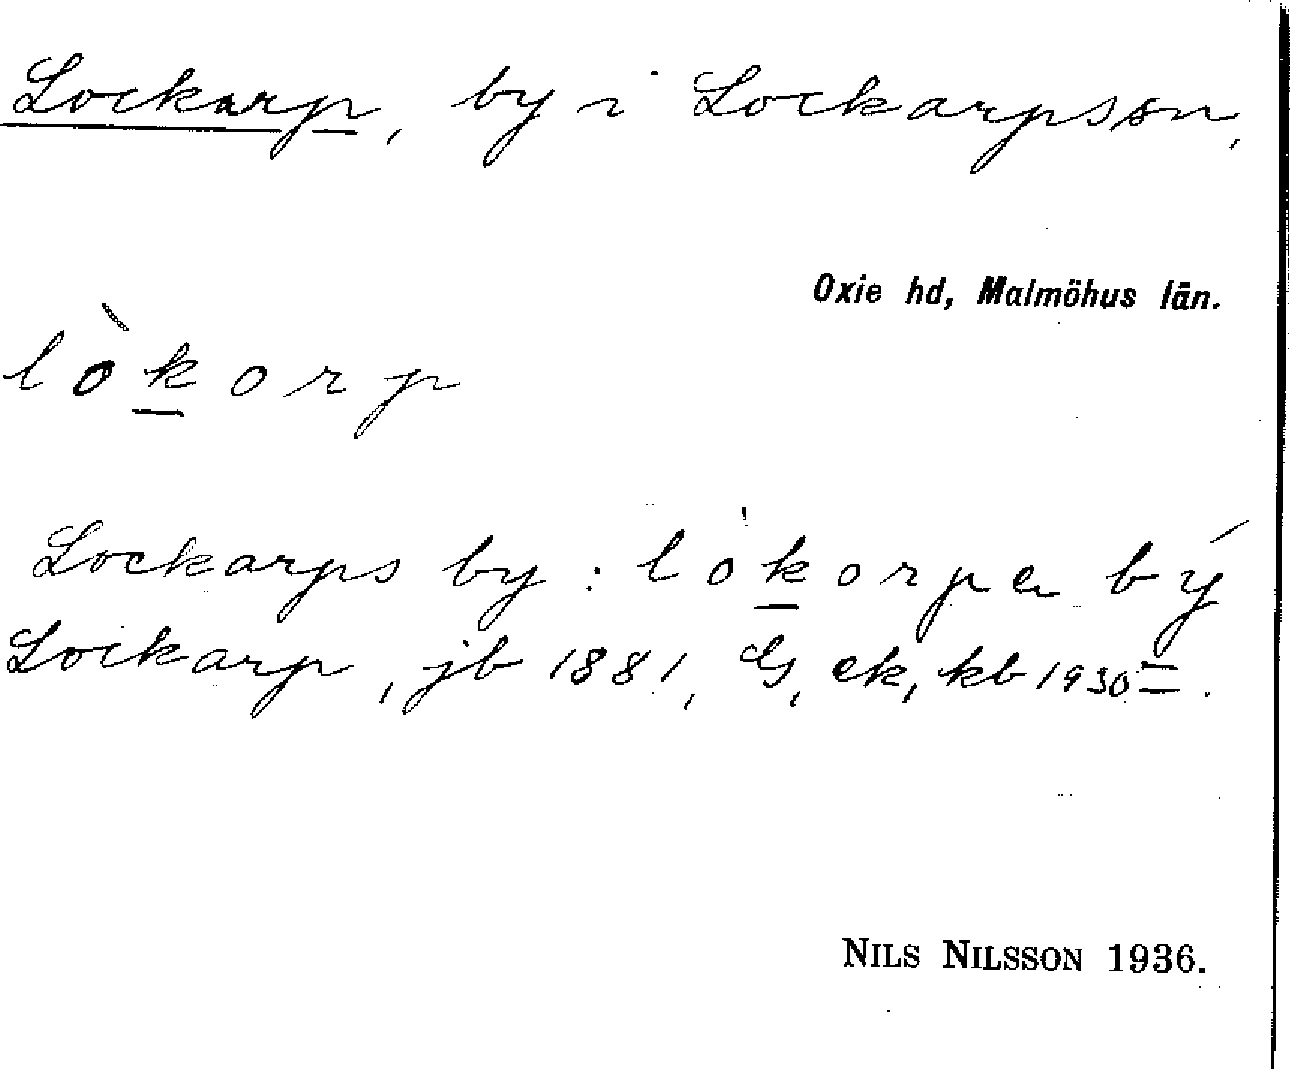 Lockarp, by i Lockarpssn,
Oxie hd, Malmöhus län.
lòkorp
Lockarps by : lòkorpa bý
Lockarp, jb 1881, GS, ek, kb 1930 =.
NILS NILSSON 1936.